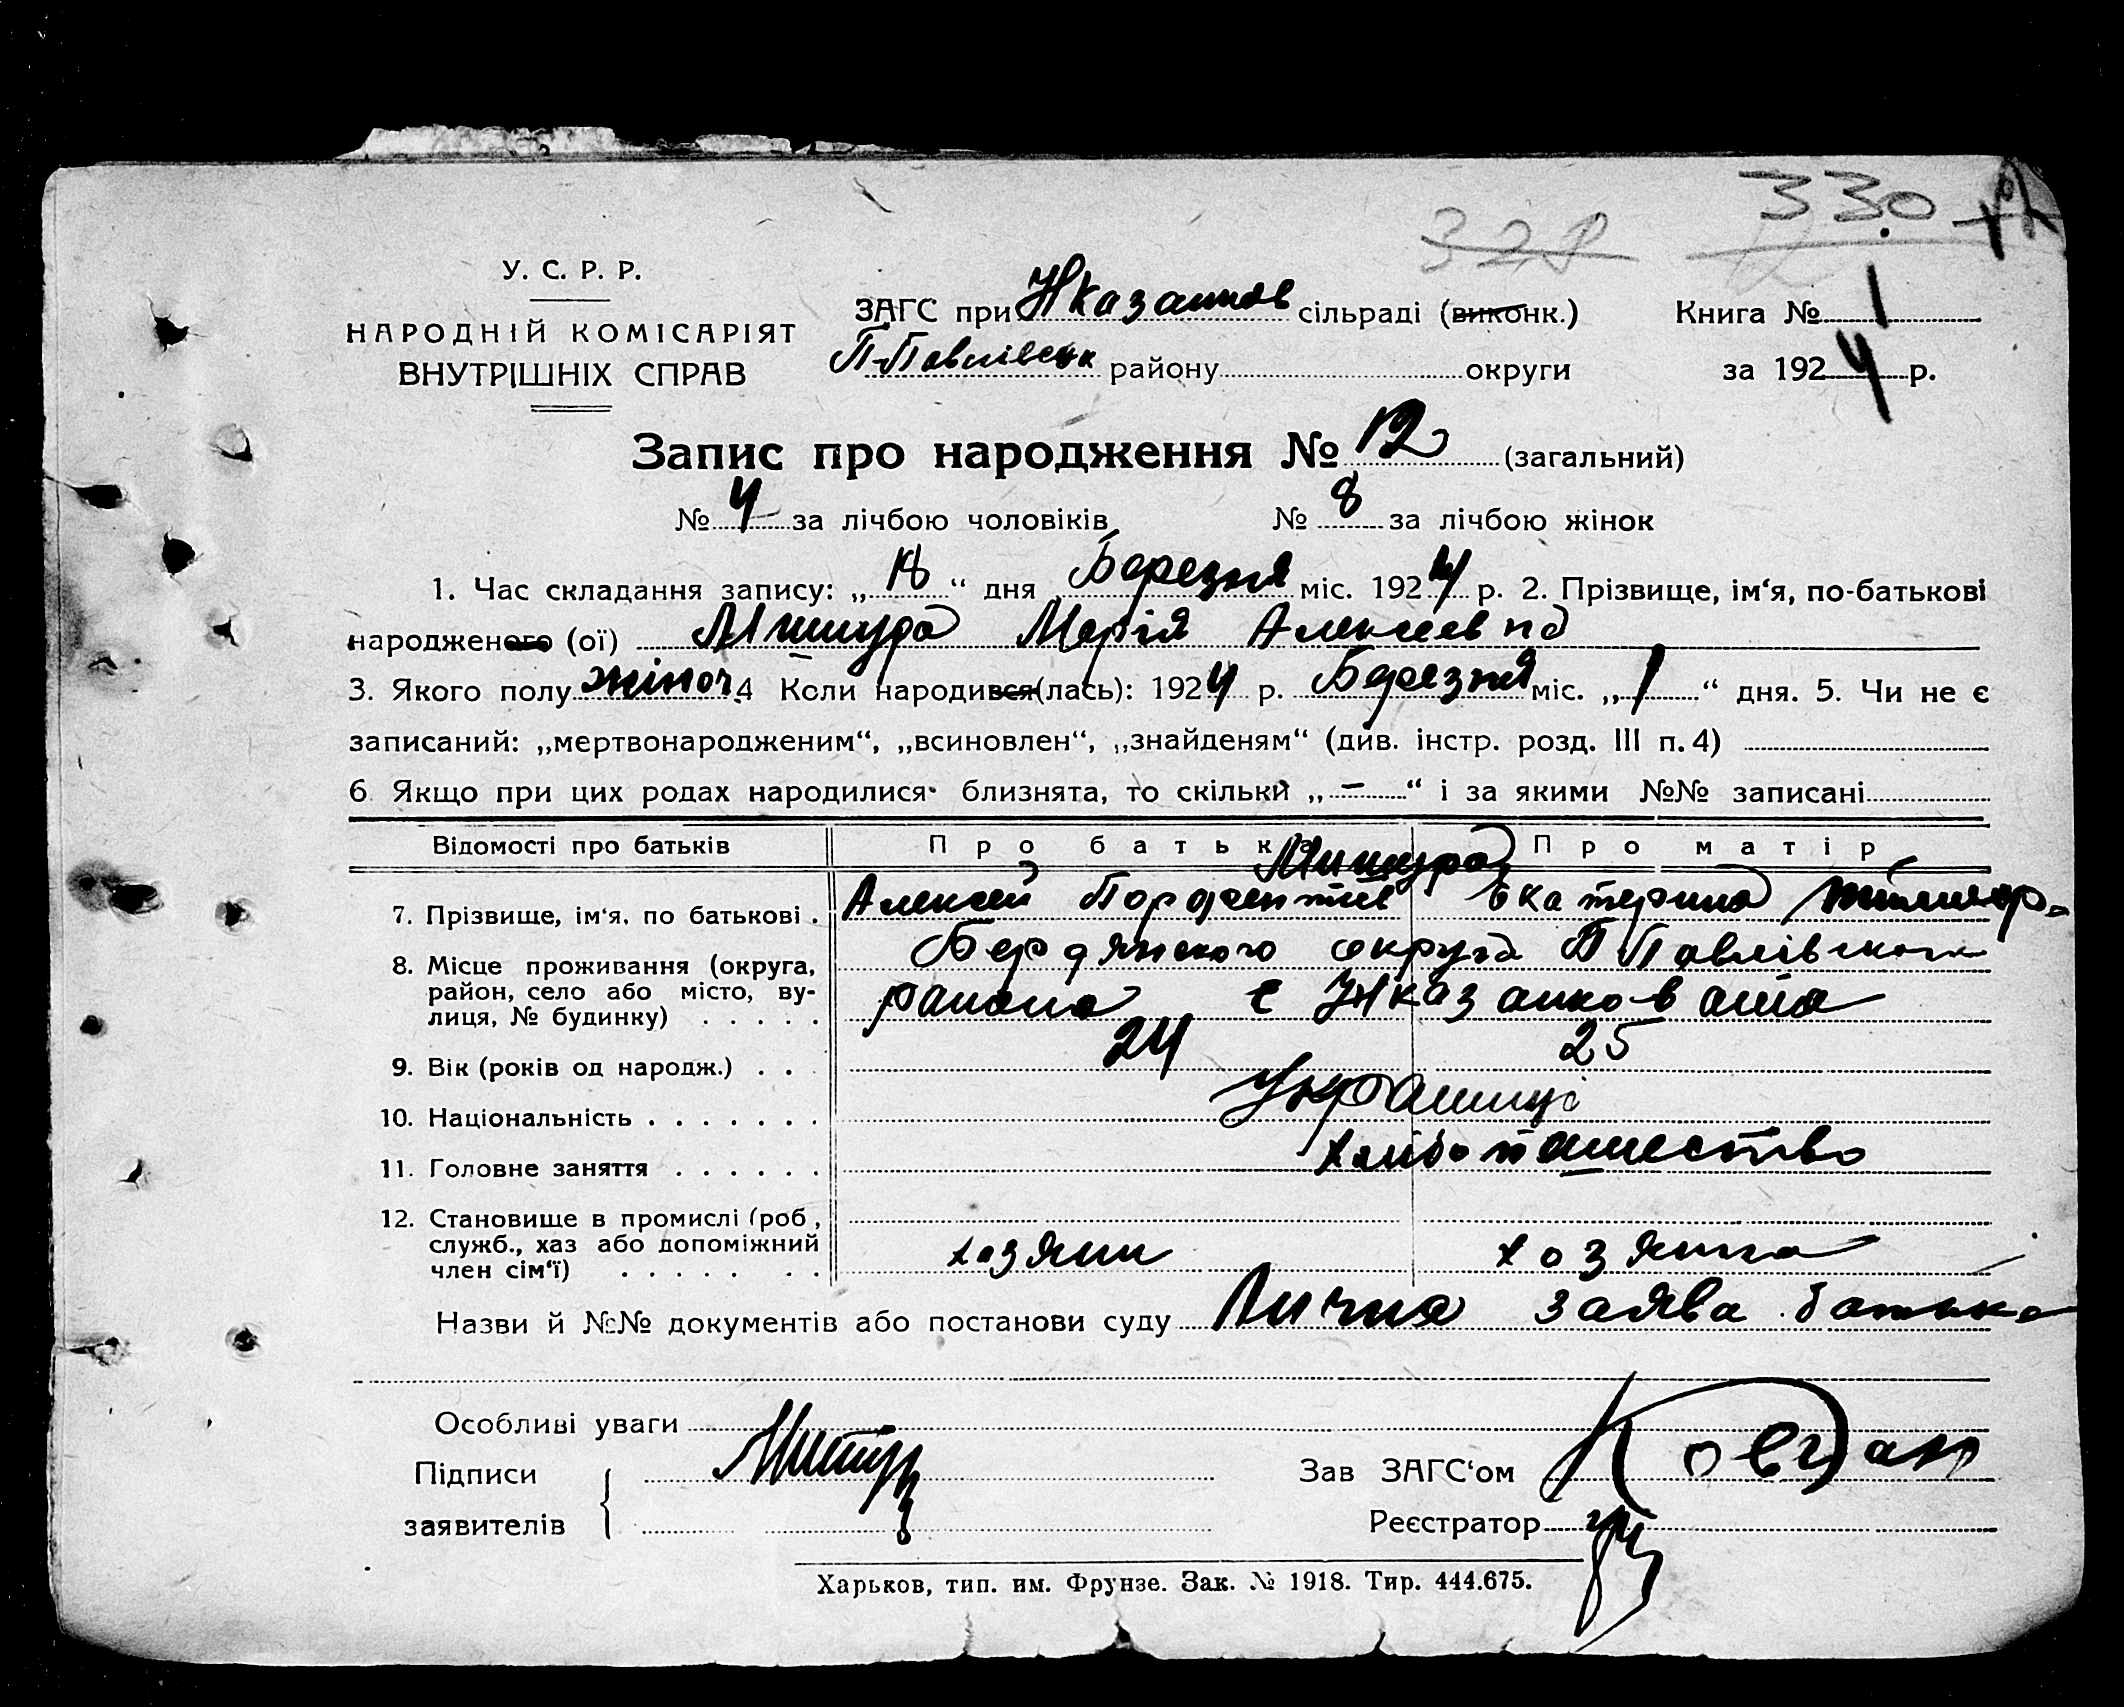 330
328
У. С. Р. Р.
НАРОДНІЙ КОМІСАРІЯТ
ВНУТРІШНІХ СПРАВ
ЗАГС при сільраді (виконк.)
П-Павлівськ району округи
Книга № 1
за 1924 р.
Запис про народження № 12 (загальний)
№ 4 за лічбою чоловіків № 8 за лічбою жінок
1. Час складання запису: „18“ дня Березня міс. 1924 р. 2. Прізвище, ім‘я, по-батькові
народженого (ої) Мишура Марія Алексеевна
3. Якого полу жіноч. 4 Коли народився(лась): 1924 р. Березня міс. „1“ дня. 5. Чи не є
записаний: „мертвонародженим“, „всиновлен“, „знайденям“ (див. інстр. розд. III п. 4)
6 Якщо при цих родах народилися близнята, то скільки „–“ і за якими №№ записані
Відомості про батьків Про батька Про матір
Мишура
7. Прізвище, ім‘я, по батькові . Алексей Порфентів Екатерина
8. Місце проживання (округа, Бердянского округа П Павлівского
район, село або місто, ву- района с
лиця, № будинку) . . . . .
9. Вік (років од народж.) . . 24 25
10. Національність . . . . . . . Українці
11. Головне заняття . . . . . . хлібопашество
12. Становище в промислі (роб,
служб., хаз або допоміжний
член сім‘ї) . . . . . . . хозяин хозяина
Назви й №№ документів або постанови суду Лична заява батька
Особливі уваги
Підписи Зав ЗАГС‘ом Ковган
заявителів Реєстратор
Харьков, тип. им. Фрунзе. Зак. № 1918. Тир. 444.675.